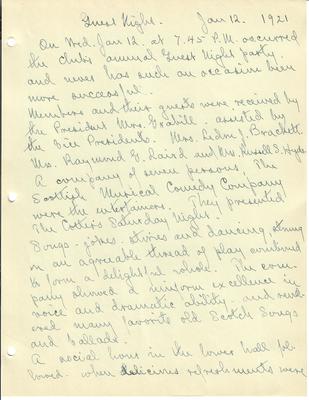 Guest Night. Jan 12. 1921
On Wed. Jan 12. at 7.45 P.M. occurred
the clubs annual Guest Night party
and never has such an occasion been
more successful.
Members and their guests were received by
the President Mrs. Grabill. assisted by
the Vice Presidents. Mrs. J. Brackett
Mrs. Raymond E. Laird and Mrs. Russell S. Hyde
A company of seven persons. The
Scottish Musical Comedy Company
were the entertainers. They presented
The Cotters Saturday Night.
Songs - jokes. stories and dancing, strung
on an agreeable thread of play combined
to form a delightful whole. The com-
pany showed a uniform excellence in
voice and dramatic ability. and rend-
ered many favorite old Scotch Songs
and ballads.
A social hour in the lower hall fol-
lowed. when delicious refreshments were